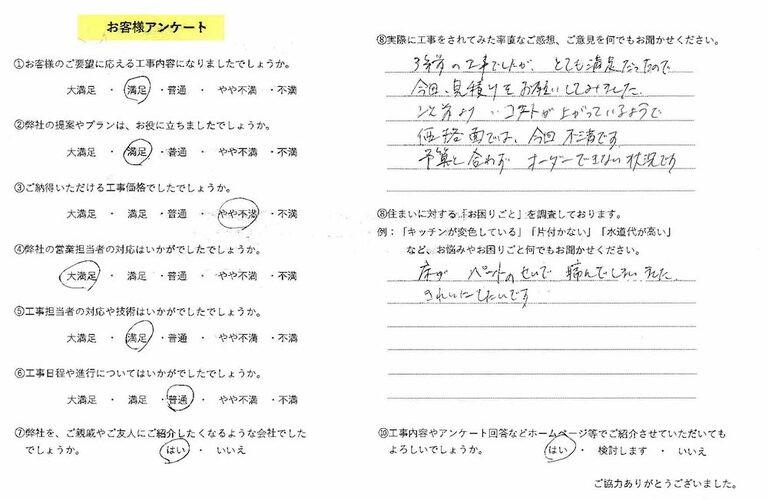 お客様アンケート
①お客様のご要望に応える工事内容になりましたでしょうか。
大満足 ・ 満足 ・普通 ・ やや不満 ・不満
②弊社の提案やプランは、お役に立ちましたでしょうか。
大満足 ・ 満足 ・普通 ・ やや不満 ・不満
③ご納得いただける工事価格でしたでしょうか。
大満足 ・ 満足 ・普通 ・ やや不満 ・不満
④弊社の営業担当者の対応はいかがでしたでしょうか。
大満足 ・ 満足 ・普通 ・ やや不満 ・不満
⑤工事担当者の対応や技術はいかがでしたでしょうか。
大満足 ・ 満足 ・普通 ・ やや不満 ・不満
⑥工事日程や進行についてはいかがでしたでしょうか。
大満足 ・ 満足 ・普通 ・ やや不満 ・不満
⑦弊社を、ご親戚やご友人にご紹介したくなるような会社でした
でしょうか。 はい ・ いいえ
⑧実際に工事をされてみた率直なご感想、ご意見を何でもお聞かせください。
3年前の工事でしたが、とても満足だったので
今回、見積りをお願いしてみました。
以前より コストが上がっているようで
価格面では、今回不満です
予算と合わず オーダーできない状況です
⑨住まいに対する「お困りごと」を調査しております。
例：「キッチンが変色している」「片付かない」「水道代が高い」
など、お悩みやお困りごと何でもお聞かせください。
床が ペットのせいで 痛んでしまいました
きれいにしたいです
⑩工事内容やアンケート回答などホームページ等でご紹介させていただいても
よろしいでしょうか。 はい ・ 検討します ・ いいえ
ご協力ありがとうございました。